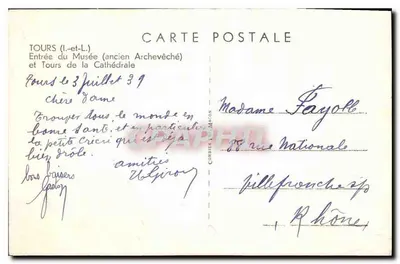 CARTE POSTALE
TOURS (I.-et-L.)
Entrée du Musée (ancien Archevêché)
et Tours de la Cathédrale
Tours le 3 Juillet 39
chère Dame
Trouper tous le monde en
bonne santé et en particulier
la petite Cricri qui est
bien drôle.
amitiés
bons baisers
Madame Fayolle
rue Nationale
Villefranche s/s
Rhône